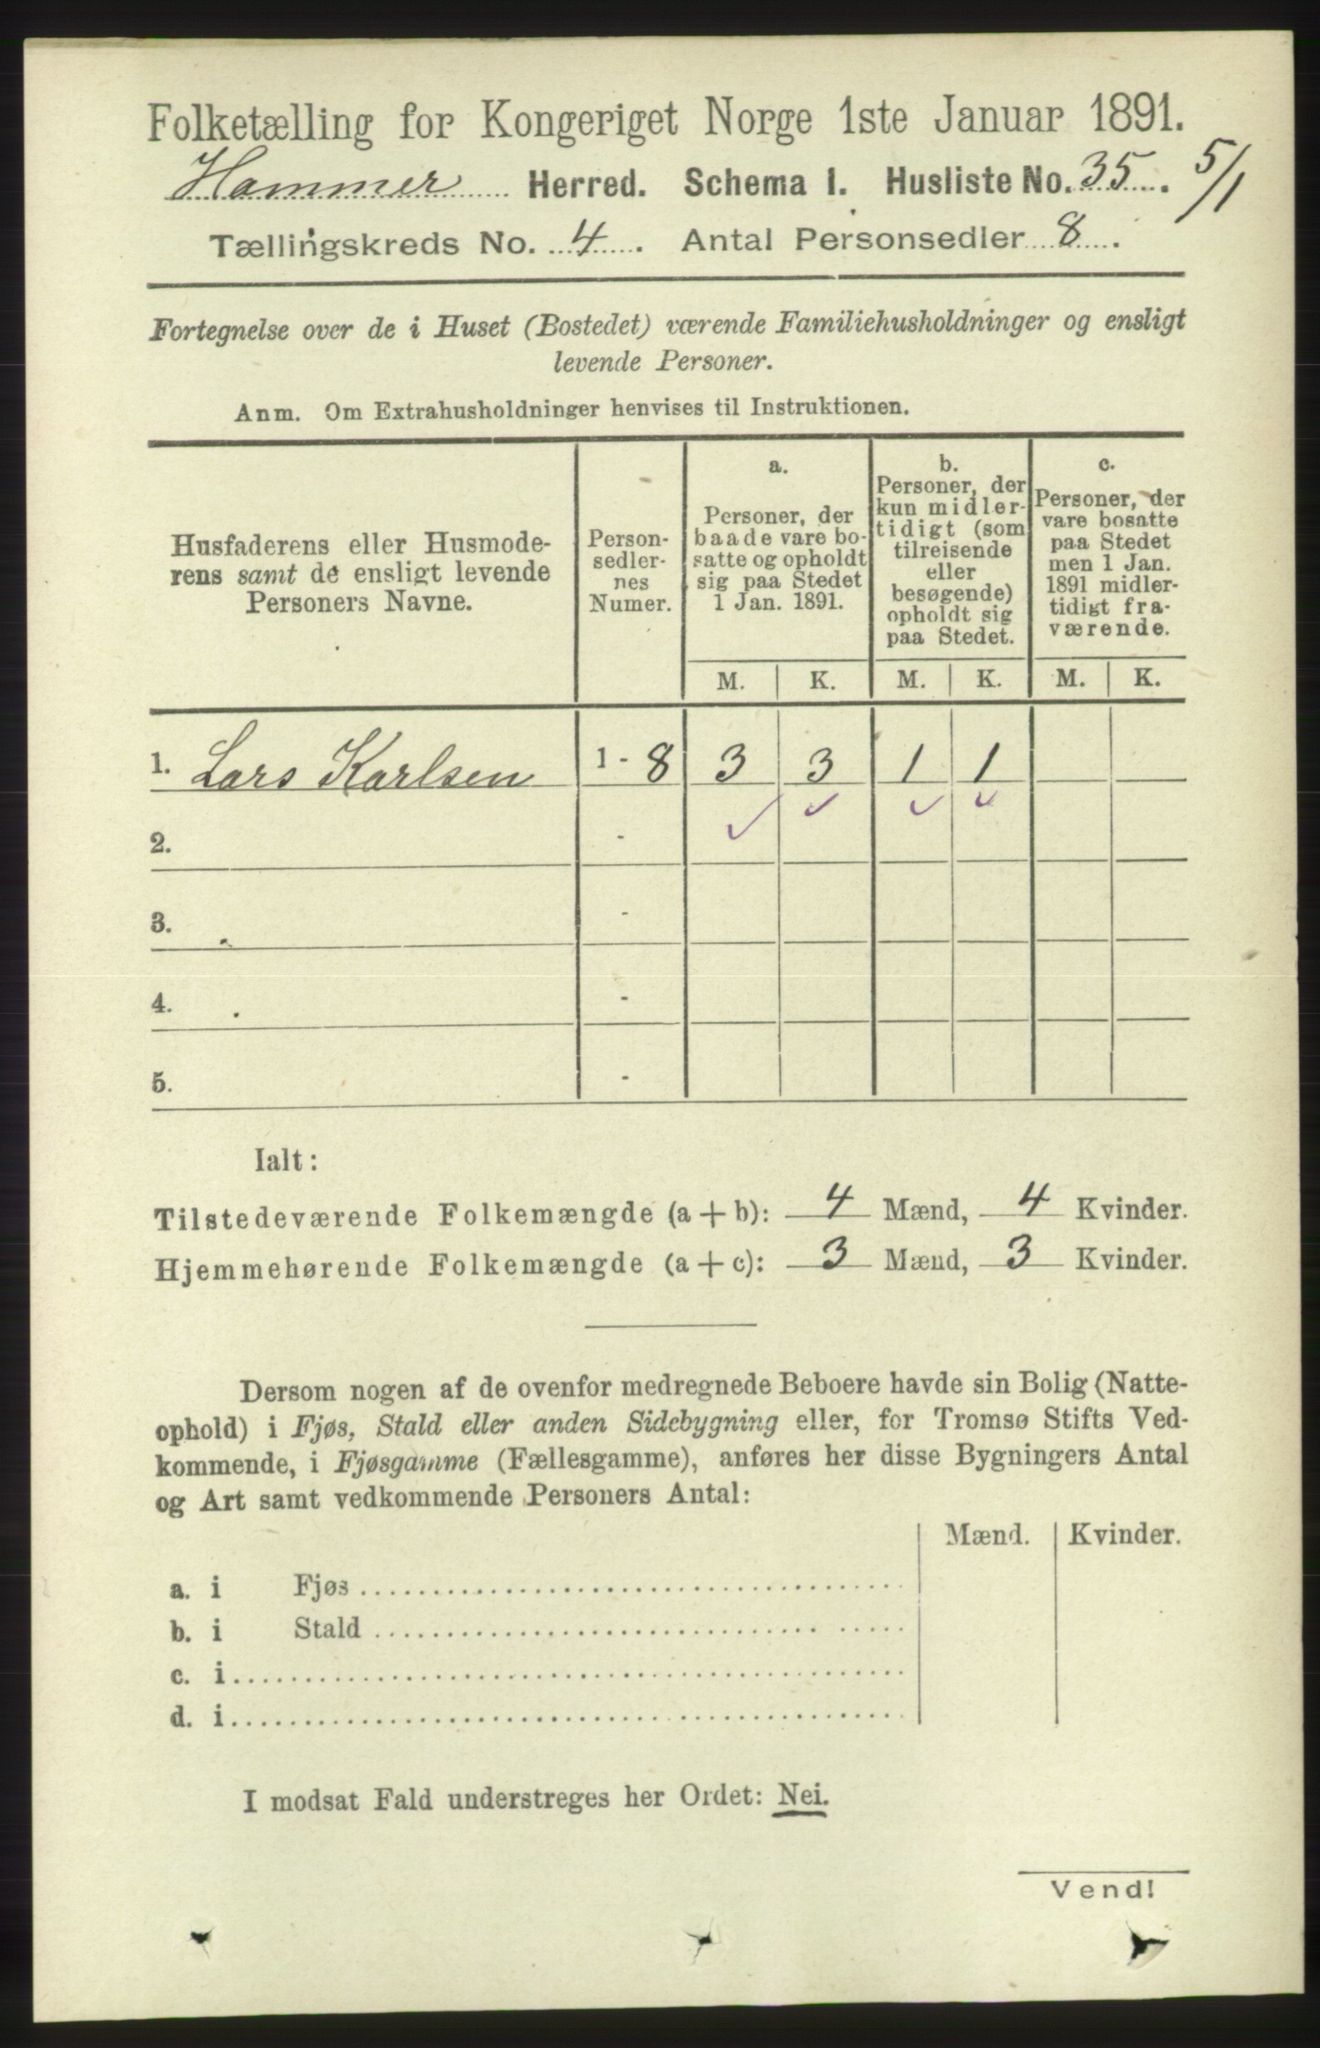 Folketælling for Kongeriget Norge 1ste Januar 1891.
Hammer Herred. Schema I. Husliste No. 35. 5/1
Tællingskreds No. 4. Antal Personsedler 8.
Fortegnelse over de i Huset (Bostedet) værende Familiehusholdninger og ensligt
levende Personer.
Anm. Om Extrahusholdninger henvises til Instruktionen.
Husfaderens eller Husmode-
rens samt de ensligt levende
Personers Navne.
Person-
sedler-
nes
Numer.
a.
Personer, der
baade vare bo-
satte og opholdt
sig paa Stedet
1 Jan. 1891.
b.
Personer, der
kun midler-
tidigt (som
tilreisende
eller
besøgende)
opholdt sig
paa Stedet.
c.
Personer, der
vare bosatte
paa Stedet
men 1 Jan.
1891 midler-
tidigt fra-
værende.
M. K. M. K. M. K.
1. Lars Karlsen 1 - 8 3 3 1 1
2. -
3. -
4. -
5. -
Ialt:
Tilstedeværende Folkemængde (a + b): 4 Mænd, 4 Kvinder.
Hjemmehørende Folkemængde (a + c): 3 Mænd, 3 Kvinder.
Dersom nogen af de ovenfor medregnede Beboere havde sin Bolig (Natte-
ophold) i Fjøs, Stald eller anden Sidebygning eller, for Tromsø Stifts Ved-
kommende, i Fjøsgamme (Fællesgamme), anføres her disse Bygningers Antal
og Art samt vedkommende Personers Antal:
Mænd. Kvinder.
a. i Fjøs
b. i Stald
c. i
d. i
I modsat Fald understreges her Ordet: Nei.
Vend!